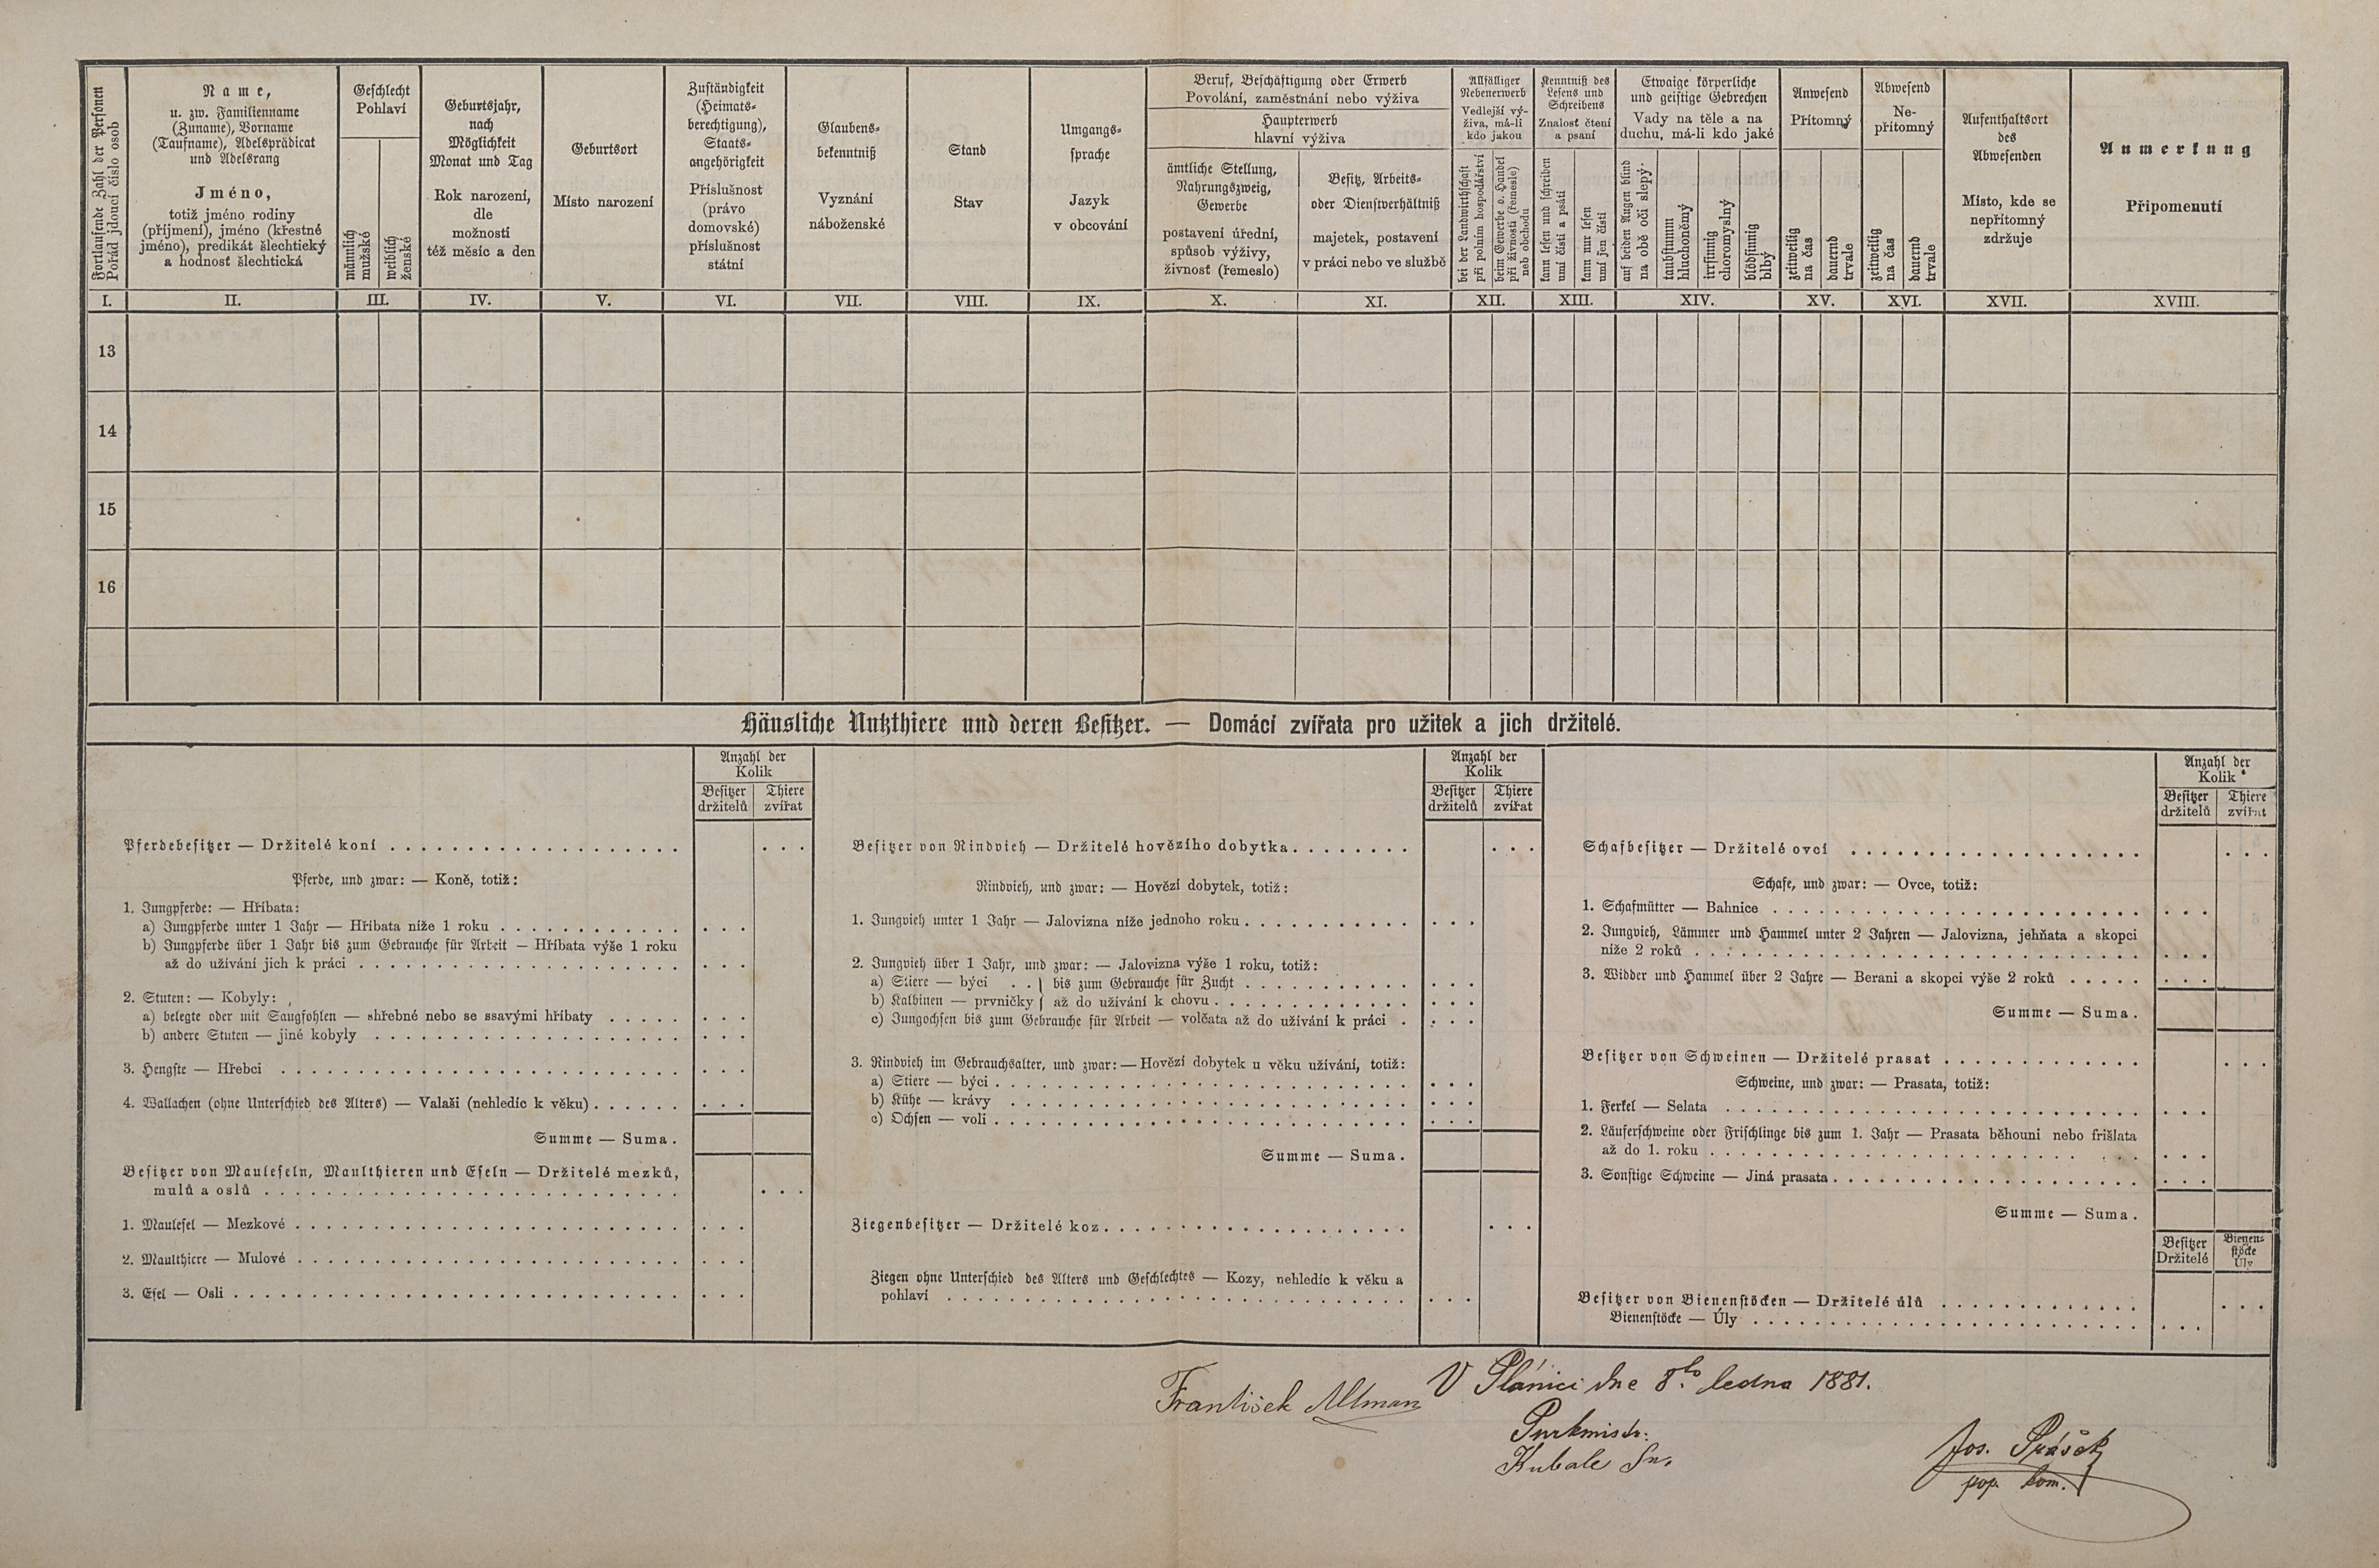 Fortlaufende Zahl der Personen
Pořád jdoucí číslo osob
Name,
u. zw. Familienname
(Zuname), Vorname
(Taufname), Adelsprädicat
und Adelsrang
Jméno,
totiž jméno rodiny
(příjmení), jméno (křestné
jméno), predikát šlechtický
a hodnosť šlechtická
Geschlecht
Pohlaví
männlich
mužské
weiblich
ženské
Geburtsjahr,
nach
Möglichkeit
Monat und Tag
Rok narození,
dle
možnosti
též měsíc a den
Geburtsort
Místo narození
Zuständigkeit
(Heimats-
berechtigung),
Staats-
angehörigkeit
Příslušnost
(právo
domovské)
příslušnost
státní
Glaubens-
bekenntniß
Vyznání
náboženské
Stand
Stav
Umgangs-
sprache
Jazyk
v obcování
Beruf, Beschäftigung oder Erwerb
Povolání, zaměstnání nebo výživa
Haupterwerb
hlavní výživa
ämtliche Stellung,
Nahrungszweig,
Gewerbe
postavení úřední,
spůsob výživy,
živnosť (řemeslo)
Besitz, Arbeits-
oder Dienstverhältniß
majetek, postavení
v práci nebo ve službě
Allfälliger
Nebenerwerb
Vedlejší vý-
živa, má-li
kdo jakou
bei der Landwirthschaft
při polním hospodářství
beim Gewerbe o. Handel
při živnosti (řemesle)
neb obchodu
Kenntniß des
Lesens und
Schreibens
Znalosť čtení
a psaní
kann lesen und schreiben
umí čísti a psáti
kann nur lesen
umí jen čísti
Etwaige körperliche
und geistige Gebrechen
Vady na těle a na
duchu, má-li kdo jaké
auf beiden Augen blind
na obě oči slepý.
taubstumm
hluchoněmý
irrsinnig
choromyslný
blödsinnig
blbý
Anwesend
Přítomný
zeitweilig
na čas
dauernd
trvale
Abwesend
Ne-
přítomný
zeitweilig
na čas
dauernd
trvale
Aufenthaltsort
des
Abwesenden
Místo, kde se
nepřítomný
zdržuje
Anmerkung
Připomenutí
I. II. III. IV. V. VI. VII. VIII. IX. X. XI. XII. XIII. XIV. XV. XVI. XVII. XVIII.
13
14
15
16
Häusliche Nutzthiere und deren Besitzer. — Domácí zvířata pro užitek a jich držitelé.
Anzahl der
Kolik
Besitzer Thiere
držitelů zvířat
Pferdebesitzer — Držitelé koní . . . . . . . . . . . . . . . . . . .
Pferde, und zwar: — Koně, totiž:
1. Jungpferde: — Hříbata:
a) Jungpferde unter 1 Jahr — Hříbata níže 1 roku . . . . . . . . . . . .
b) Jungpferde über 1 Jahr bis zum Gebrauche für Arbeit — Hříbata výše 1 roku
až do užívání jich k práci . . . . . . . . . . . . . . . . . . . . .
2. Stuten: — Kobyly:
a) belegte oder mit Saugfohlen — shřebné nebo se ssavými hříbaty . . . . .
b) andere Stuten — jiné kobyly . . . . . . . . . . . . . . . . . . . .
3. Hengste — Hřebci . . . . . . . . . . . . . . . . . . . . . . . . . .
4. Wallachen (ohne Unterschied des Alters) — Valaši (nehledíc k věku) . . . . . .
Summe — Suma.
Besitzer von Mauleseln, Maulthieren und Eseln — Držitelé mezků,
mulů a oslů . . . . . . . . . . . . . . . . . . . . . . . . . . .
1. Maulesel — Mezkové . . . . . . . . . . . . . . . . . . . . . . . . .
2. Maulthiere — Mulové . . . . . . . . . . . . . . . . . . . . . . . . .
3. Esel — Osli . . . . . . . . . . . . . . . . . . . . . . . . . . . . .
Anzahl der
Kolik
Besitzer Thiere
držitelů zvířat
Besitzer von Rindvieh — Držitelé hovězího dobytka . . . . . . . .
Rindvieh, und zwar: — Hovězí dobytek, totiž:
1. Jungvieh unter 1 Jahr — Jalovizna níže jednoho roku . . . . . . . . . . .
2. Jungvieh über 1 Jahr, und zwar: — Jalovizna výše 1 roku, totiž:
a) Stiere — býci . . } bis zum Gebrauche für Zucht . . . . . . . . . . .
b) Kalbinen — prvničky } až do užívání k chovu . . . . . . . . . . . . .
c) Jungochsen bis zum Gebrauche für Arbeit — volčata až do užívání k práci .
3. Rindvieh im Gebrauchsalter, und zwar: — Hovězí dobytek u věku užívání, totiž:
a) Stiere — býci . . . . . . . . . . . . . . . . . . . . . . . . . . .
b) Kühe — krávy . . . . . . . . . . . . . . . . . . . . . . . . . .
c) Ochsen — voli . . . . . . . . . . . . . . . . . . . . . . . . . . .
Summe — Suma.
Ziegenbesitzer — Držitelé koz . . . . . . . . . . . . . . . . . . . .
Ziegen ohne Unterschied des Alters und Geschlechtes — Kozy, nehledíc k věku a
pohlaví . . . . . . . . . . . . . . . . . . . . . . . . . . . . . .
Anzahl der
Kolik
Besitzer Thiere
držitelů zvířat
Schafbesitzer — Držitelé ovcí . . . . . . . . . . . . . . . . . . .
Schafe, und zwar: — Ovce, totiž:
1. Schafmütter — Bahnice . . . . . . . . . . . . . . . . . . . . . . . .
2. Jungvieh, Lämmer und Hammel unter 2 Jahren — Jalovizna, jehňata a skopci
níže 2 roků . . . . . . . . . . . . . . . . . . . . . . . . . . . . .
3. Widder und Hammel über 2 Jahre — Berani a skopci výše 2 roků . . . . .
Summe — Suma.
Besitzer von Schweinen — Držitelé prasat . . . . . . . . . . . . .
Schweine, und zwar: — Prasata, totiž:
1. Ferkel — Selata . . . . . . . . . . . . . . . . . . . . . . . . . . .
2. Läuferschweine oder Frischlinge bis zum 1. Jahr — Prasata běhouni nebo frišlata
až do 1. roku . . . . . . . . . . . . . . . . . . . . . . . . . . .
3. Sonstige Schweine — Jiná prasata . . . . . . . . . . . . . . . . . . . .
Summe — Suma.
Besitzer Bienen-
stöcke
Držitelé Úly
Besitzer von Bienenstöcken — Držitelé úlů . . . . . . . . . . . . .
Bienenstöcke — Úly . . . . . . . . . . . . . . . . . . . . . . . . .
V Plánici dne 8ho ledna 1881.
František Altman
Purkmistr:
Kubale
Jos. Prášek
pop. kom.